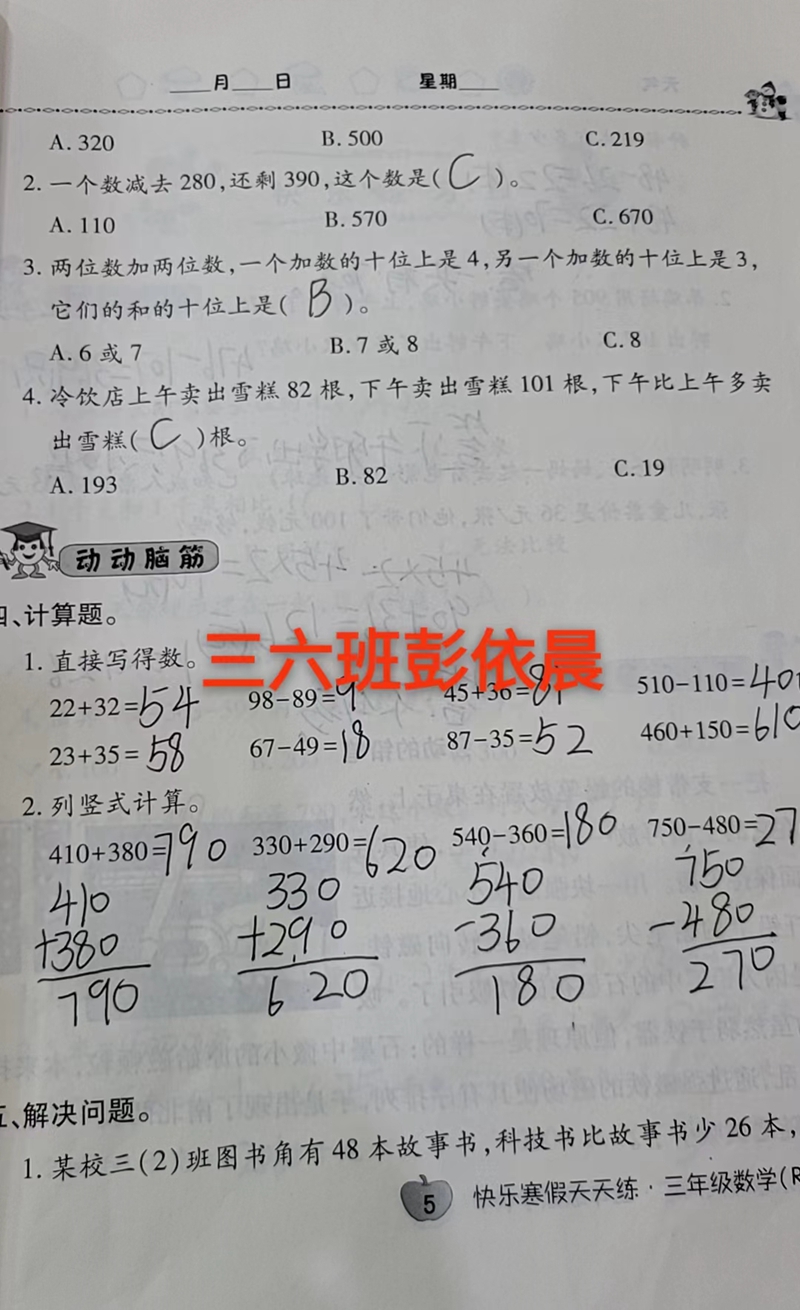 ____月____日 星期____
A. 320 B. 500 C. 219
2. 一个数减去 280,还剩 390,这个数是( C )。
A. 110 B. 570 C. 670
3. 两位数加两位数,一个加数的十位上是 4,另一个加数的十位上是 3,
它们的和的十位上是( B )。
A. 6 或 7 B. 7 或 8 C. 8
4. 冷饮店上午卖出雪糕 82 根,下午卖出雪糕 101 根,下午比上午多卖
出雪糕( C )根。
A. 193 B. 82 C. 19
动动脑筋
四、计算题。
1. 直接写得数。
三六班彭依晨
22+32=54 98-89=9 45+36=81 510-110=400
23+35=58 67-49=18 87-35=52 460+150=610
2. 列竖式计算。
410+380=790 330+290=620 540-360=180 750-480=27
410 330 540 750
+380 +290 -360 -480
790 620 180 270
五、解决问题。
1. 某校三(2)班图书角有 48 本故事书,科技书比故事书少 26 本,
5 快乐寒假天天练·三年级数学(R